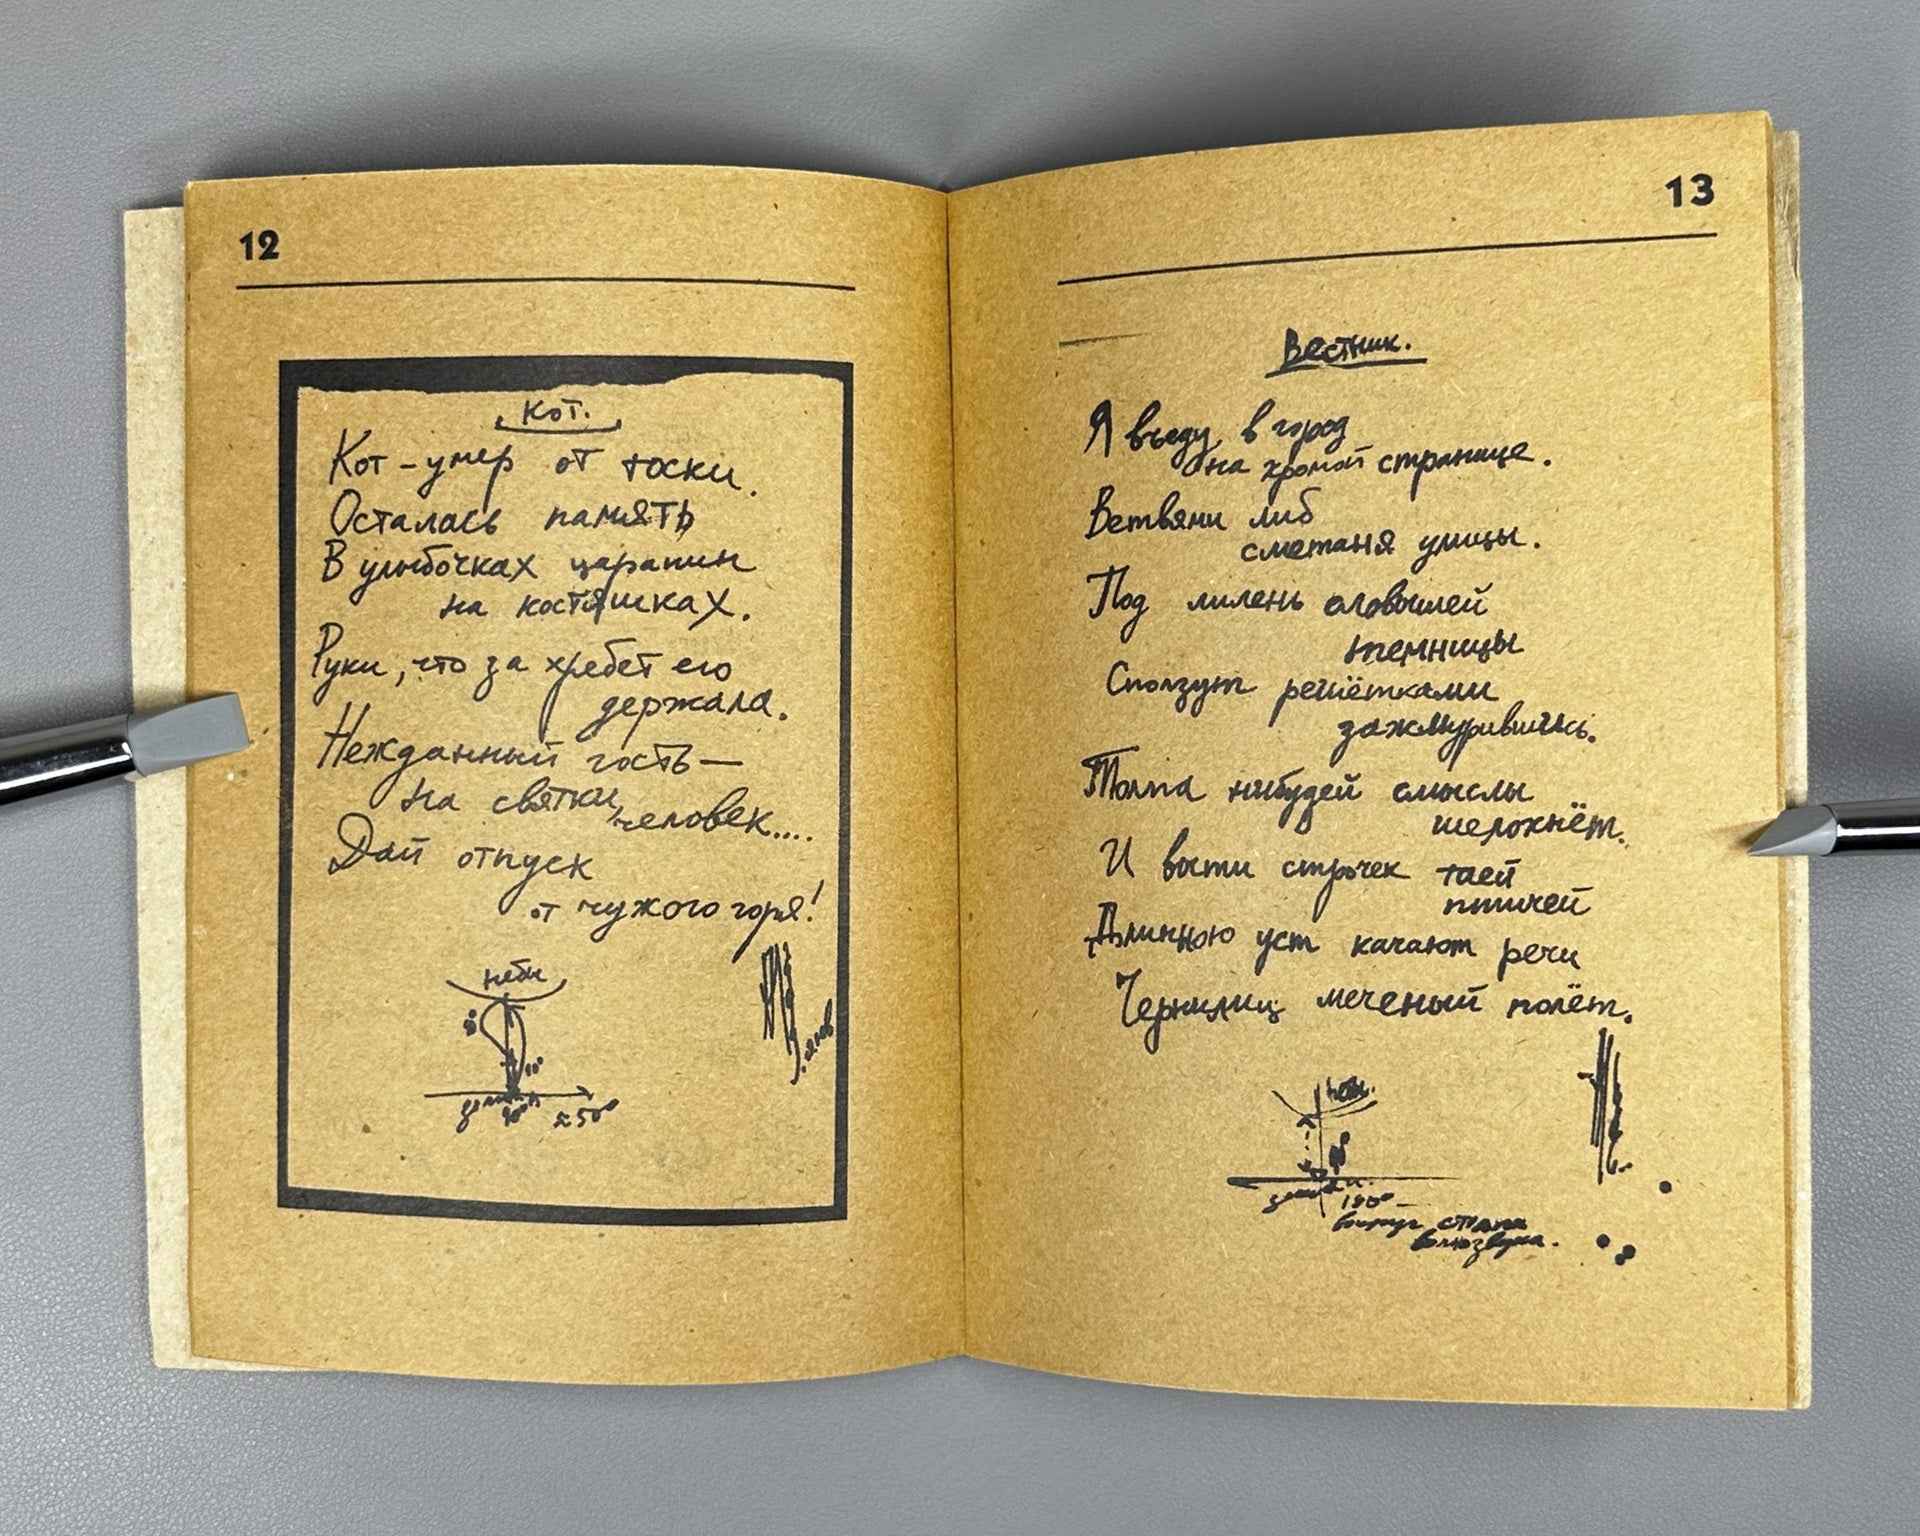 12
Кот.
Кот - умер от тоски.
Осталась память
В улыбочках царапин
на костяшках.
Руки, что за хребет его
держала.
Нежданный гость —
на святки, человек....
Дай отпуск
от чужого горя!
неба
13
Вестник.
Я въеду в город
на хромой странице.
Ветвями либ
сметаня улицы.
Под
темницы
Сползут решётками
зажмурившись.
Толпа нибудей смыслы
шелохнёт.
И вости строчек таей
птичей
Длинною уст качают речи
Чернилиц меченый полёт.
180° —
вокруг